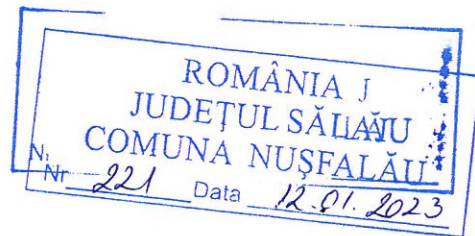 ROMÂNIA
JUDEȚUL SĂLAJ
COMUNA NUȘFALĂU
Nr 221 Data 12.01.2023